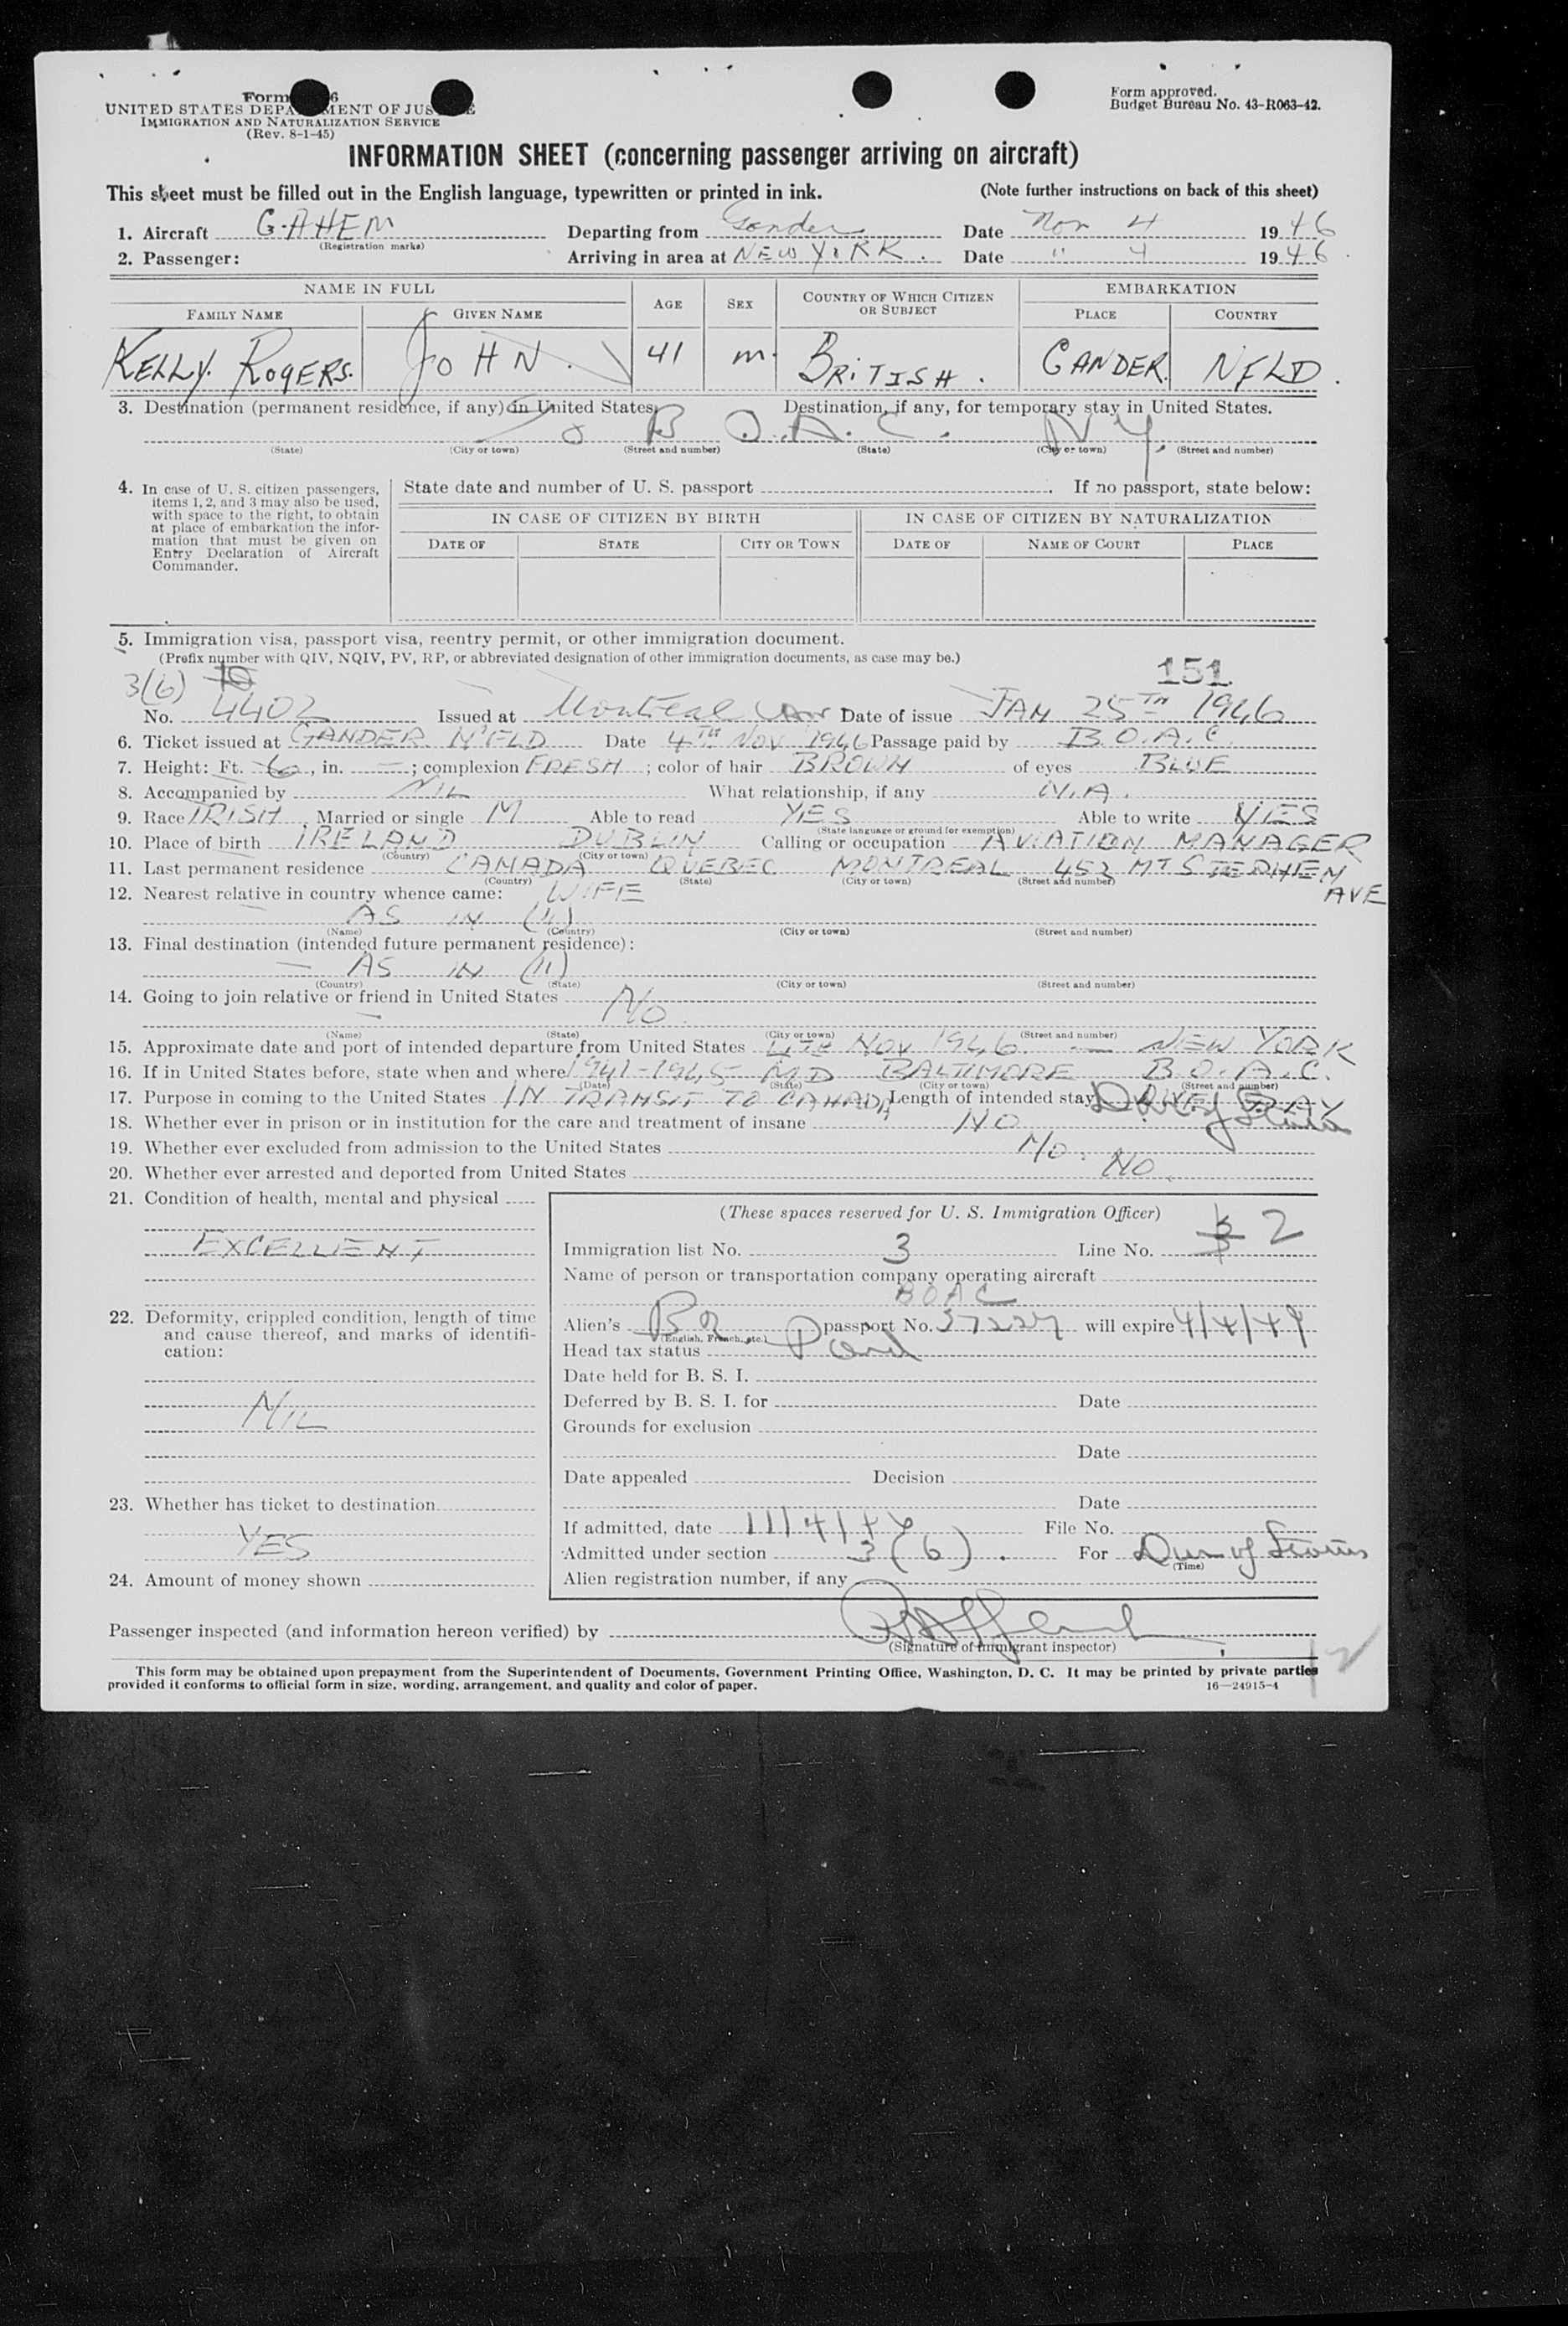 Form 6
UNITED STATES DEPARTMENT OF JUSTICE
IMMIGRATION AND NATURALIZATION SERVICE
(Rev. 8-1-45)
Form approved.
Budget Bureau No. 43-R063-42.
INFORMATION SHEET (concerning passenger arriving on aircraft)
This sheet must be filled out in the English language, typewritten or printed in ink. (Note further instructions on back of this sheet)
1. Aircraft G-AHEM Departing from Gander Date Nov 4 1946
(Registration marks)
2. Passenger: Arriving in area at NEW YORK. Date " 4 1946
NAME IN FULL AGE SEX COUNTRY OF WHICH CITIZEN OR SUBJECT EMBARKATION
FAMILY NAME GIVEN NAME PLACE COUNTRY
KELLY ROGERS. JOHN. 41 M. BRITISH. GANDER. NFLD.
3. Destination (permanent residence, if any) in United States. Destination, if any, for temporary stay in United States.
B.O.A.C. N.Y.
(State) (City or town) (Street and number) (State) (City or town) (Street and number)
4. In case of U. S. citizen passengers, items 1, 2, and 3 may also be used, with space to the right, to obtain at place of embarkation the information that must be given on Entry Declaration of Aircraft Commander.
State date and number of U. S. passport . If no passport, state below:
IN CASE OF CITIZEN BY BIRTH IN CASE OF CITIZEN BY NATURALIZATION
DATE OF STATE CITY OR TOWN DATE OF NAME OF COURT PLACE
5. Immigration visa, passport visa, reentry permit, or other immigration document.
(Prefix number with QIV, NQIV, PV, RP, or abbreviated designation of other immigration documents, as case may be.)
151
3(6)
No. 4402 Issued at Montreal Can Date of issue JAN 25TH 1946
6. Ticket issued at GANDER N'FLD Date 4TH NOV 1946 Passage paid by B.O.A.C.
7. Height: Ft. 6, in. —; complexion FRESH; color of hair BROWN of eyes BLUE
8. Accompanied by NIL What relationship, if any N.A.
9. Race IRISH Married or single M Able to read YES Able to write YES
(State language or ground for exemption)
10. Place of birth IRELAND DUBLIN Calling or occupation AVIATION MANAGER
(Country) (City or town)
11. Last permanent residence CANADA QUEBEC MONTREAL 453 MT STEPHEN AVE
(Country) (State) (City or town) (Street and number)
12. Nearest relative in country whence came: WIFE
AS IN (11)
(Name) (Country) (City or town) (Street and number)
13. Final destination (intended future permanent residence):
— AS IN (11)
(Country) (State) (City or town) (Street and number)
14. Going to join relative or friend in United States No.
(Name) (State) (City or town) (Street and number)
15. Approximate date and port of intended departure from United States 4TH NOV 1946 — NEW YORK
16. If in United States before, state when and where 1941-1945 MD BALTIMORE B.O.A.C.
(Date) (State) (City or town) (Street and number)
17. Purpose in coming to the United States IN TRANSIT TO CANADA Length of intended stay DAY
18. Whether ever in prison or in institution for the care and treatment of insane NO
19. Whether ever excluded from admission to the United States No.
20. Whether ever arrested and deported from United States No.
21. Condition of health, mental and physical
EXCELLENT
22. Deformity, crippled condition, length of time and cause thereof, and marks of identification:
NIL
23. Whether has ticket to destination
YES
24. Amount of money shown
(These spaces reserved for U. S. Immigration Officer)
Immigration list No. 3 Line No. 2
Name of person or transportation company operating aircraft
BOAC
Alien's Br passport No. 37227 will expire 4/4/49
(English, French, etc.)
Head tax status
Date held for B. S. I.
Deferred by B. S. I. for Date
Grounds for exclusion
Date
Date appealed Decision
Date
If admitted, date 11/4/46 File No.
Admitted under section 3(6). For Dur of Status
(Time)
Alien registration number, if any
Passenger inspected (and information hereon verified) by
(Signature of immigrant inspector)
This form may be obtained upon prepayment from the Superintendent of Documents, Government Printing Office, Washington, D. C. It may be printed by private parties
provided it conforms to official form in size, wording, arrangement, and quality and color of paper. 16—24915-4